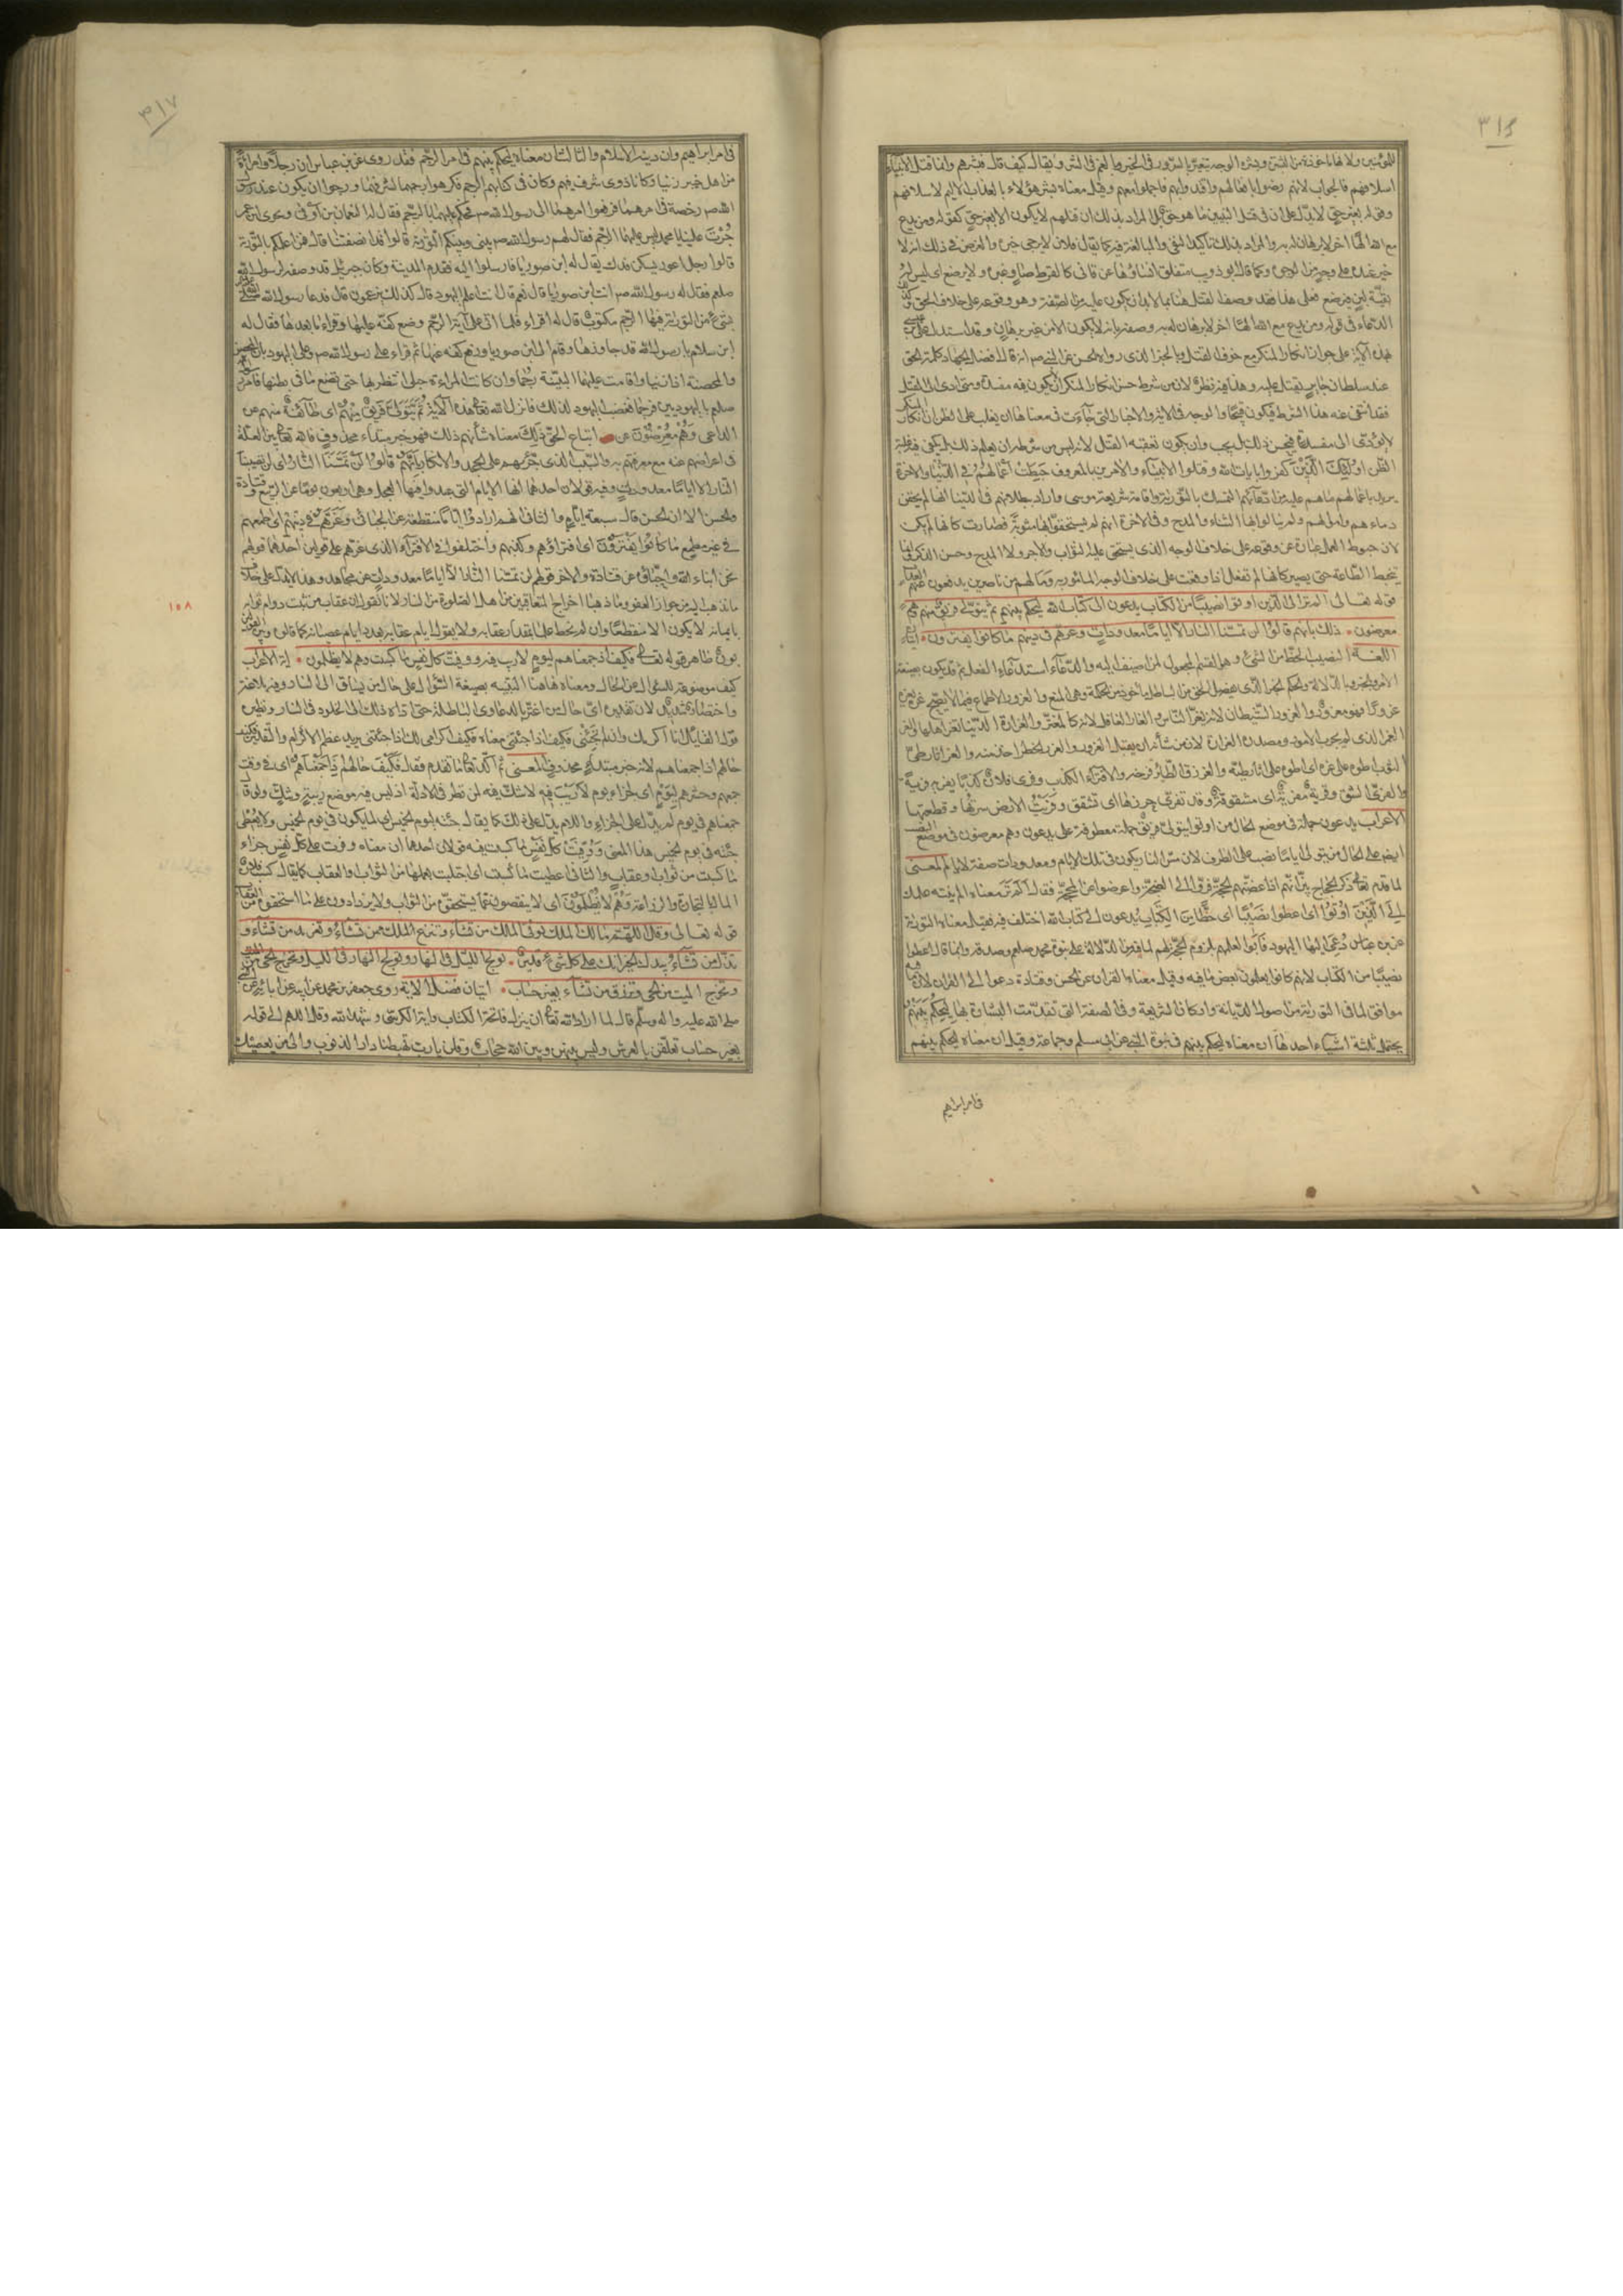 ٣١٦
للمؤمنين ولا
اسلافهم فالجواب لانهم رضوا بافعالهم واقتدوا بهم فاجملوا معهم وقيل معناه بشر هؤلاء بالعذاب الاليم لاسلافهم
وقوله بغير حق لا يدل على ان فى قتل النبيين ما هو حق بل المراد بذلك ان قتلهم لا يكون الا بغير حق كقوله ومن يدع
مع الله الها اخر لا برهان له به والمراد بذلك تأكيد النفى والمبالغة فيه كما يقال فلان لا يرجى خيره والغرض فى ذلك انه لا
خير عنده على وجه من الوجوه وكما قال ابو ذويب متفلق
بقية لبن يرضع فعلى هذا فقد وصف القتل هنا بما لابد ان يكون عليه من الصفة وهو وقوعه على خلاف الحق وكذلك
الدعاء فى قوله ومن يدع مع الله الها اخر لا برهان له به وصفه بانه لا يكون الا من غير برهان وقد استدل على بن عيسى
بهذه الآية على جواز انكار المنكر مع خوف القتل وبالخبر الذى رواه الحسن عن النبى ص انه قال افضل الجهاد كلمة الحق
عند سلطان جاير يقتل عليه وهذا فيه نظر لان من شرط حسن انكار المنكر ان يكون فيه مفسدة ومتى ادى الى القتل
فقد انتفى عنه هذا الشرط فيكون قبيحا والوجه فى الاية والاخبار التى جاءت فى معناها ان يغلب على الظن ان انكار المنكر
لا يؤدى الى مفسدة فيحسن ذلك بل يجب وان يكون تعقبه القتل لانه ليس من شرطه ان يعلم ذلك بل يكفى فيه غلبة
الظن اُولٰئِكَ الَّذِيْنَ كفروا بايات الله وقتلوا الانبياء والآمرين بالمعروف حَبِطَتْ اَعْمَالُهُمْ فِي الدُّنْيَا وَالآخِرَة
يريد باعمالهم ما هم عليه من ادعائهم التمسك بالتورية واقامة شريعة موسى واراد ببطلانها فى الدنيا انها لم يحقن
دماءهم واموالهم ولم ينالوا بها الثناء والمدح وفى الآخرة انهم لم يستحقوا بها مثوبة فصارت كانها لم تكن
لان حبوط العمل عبارة عن وقوعه على خلاف الوجه الذى يستحق عليه الثواب والاجر والمدح وحسن الذكر وانما
تحبط الطاعة حتى يصير كانها لم تفعل اذا وقعت على خلاف الوجه المامور به وما لهم من ناصرين يدفعون عنهم العذاب
قوله تعالى الم تر الى الذين اوتوا نصيبا من الكتاب يدعون الى كتاب الله ليحكم بينهم ثم يتولى فريق منهم وهم
معرضون ۰ ذلك بانهم قالوا لن تمسنا النار الا اياما معدودات وغرهم فى دينهم ما كانوا يفترون ۰ ايتان
اللغة النصيب الحظ من الشئ وهو القسم المجعول لمن اضيف اليه والدعاء استدعاء الفعل ثم قد يكون بصيغة
الامر وبالخبر وبالدلالة والحكم الخبر الذى يفصل الحق من الباطل ماخوذ من الحكمة وهى المنع والغرور الاطماع فيما لا يصح غره يغره
غرورا فهو مغرور والغرور الشيطان لانه يغر الناس والغار الغافل لانه كالمغتر والغرارة الدنيا لغرها اهلها والغر
الغمر الذى لم يجرب الامور ومصدره الغرارة لان من شأنه ان يقبل الغرور والغرر الخطر اخذ منه والغر اثار طى
الثوب اطوه على غره اى اطوه على اثار طيه والغر زق الطائر فرخه والافتراء الكذب وفرى فلان كذبا يفريه فرية
والفرى الشق وفرية مفرية اى مشقوقة وقد تفرى جرزها اى تشقق وفريت الارض سرتها وقطعتها
الاعراب يدعون جملة فى موضع الحال من اوتوا يتولى فريق جملة معطوفة على يدعون وهم معرضون فى موضع النصب
ايضا على الحال من يتولى اياما نصب على الظرف لان مس النار يكون فى تلك الايام ومعدودات صفة لايام المعنى
لما قدم تعالى ذكر الحجاج بين انهم اذا عضتهم الحجة فروا الى الضجة واعرضوا عن المحجة فقال اَلَمْ تَرَ معناه الم ينته علمك
اِلَى الَّذِيْنَ اُوْتُوْا اى اعطوا نَصِيْبًا اى حظا مِنَ الْكِتَابِ يُدعون الى كتاب الله اختلف فيه فقيل معناه التورية
عن بن عباس دعى اليها اليهود فابوا لعلمهم بلزوم الحجة لهم لما فيه من الدلالة على نبوة محمد صلعم وصدقه وانما قال اعطوا
نصيبا من الكتاب لانهم كانوا يعلمون بعض ما فيه وقيل معناه القران عن الحسن وقتادة دعوا الى القران لان ما فيه
موافق لما فى التورية من اصول الديانة واركان الشريعة وفى الصفة التى تقدمت البشارة بها لِيَحْكُمَ بَيْنَهُمْ
يحتمل ثلثة اشياء احدها ان معناه ليحكم بينهم فى نبوة النبى عن ابى مسلم وجماعة وقيل ان معناه ليحكم بينهم
فى امر ابراهيم
٣١٧
فى امر ابراهيم وان دينه الاسلام والثالث ان معناه ليحكم بينهم فى امر الرجم فقد روى عن بن عباس ان رجلا وامرأة
من اهل خيبر زنيا وكانا ذوى شرف فيهم وكان فى كتابهم الرجم فكرهوا رجمهما لشرفهما ورجوا ان يكون عند رسول
الله ص رخصة فى امرهما فرفعوا امرهما الى رسول الله ص فحكم عليهما بالرجم فقال له النعمان بن اوفى وبحرى بن عمرو
جُرْتَ علينا يا محمد ليس عليهما الرجم فقال لهم رسول الله ص بينى وبينكم التورية قالوا قد انصفتنا قال فمن اعلمكم بالتورية
قالوا رجل اعور يسكن فدك يقال له ابن صوريا فارسلوا اليه فقدم المدينة وكان جبرئيل قد وصفه لرسول الله
صلعم فقال له رسول الله ص انت ابن صوريا قال نعم قال انت اعلم اليهود قال كذلك يزعمون قال فدعا رسول الله صلى
بشئ من التورية فيها الرجم مكتوب قال له اقراء فلما اتى على آية الرجم وضع كفه عليها وقراء ما بعدها فقال له
ابن سلام يا رسول الله قد جاوزها وقام الى ابن صوريا ورفع كفه عنها ثم قراء على رسول الله ص وعلى اليهود بان المحصن
والمحصنة اذا زنيا واقامت عليهما البينة رجما وان كانت المراءة حبلى انتظر بها حتى تضع ما فى بطنها فامر رسول
صلعم باليهوديين فرجما فغضب اليهود لذلك فانزل الله تعالى هذه الآية ثُمَّ يَتَوَلّٰى فَرِيْقٌ مِنْهُمْ اى طآئفة منهم عن
الداعى وَهُمْ مُعْرِضُوْنَ عن اتباع الحق ذٰلِكَ معناه شأنهم ذلك فهو خبر مبتداء محذوف فالله تعالى بين العلة
فى اعراضهم عنه مع معرفتهم به والسبب الذى جرّئهم على الجحد والانكار بِاَنَّهُمْ قَالُوْا لَنْ تَمَسَّنَا النَّارُ اى لن تصيبنا
النار الا اياما معدودات وفيه قولان احدهما انها الايام التى عبدوا فيها العجل وهى اربعون يوما عن الربيع وقتادة
والحسن الا ان الحسن قال سبعة ايام والثانى انهم ارادوا اياما منقطعة عن الجبائى وَغَرَّهُمْ فِى دِيْنِهِمْ اى اطمعهم
فى غير مطمع مَا كَانُوْا يَفْتَرُوْنَ اى افتراؤهم وكذبهم واختلفوا فى الافتراء الذى غرهم على قولين احدهما قولهم
نحن ابناء الله واحباؤه عن قتادة والاخر قولهم لن تمسنا النار الا اياما معدودات عن مجاهد وهذا لا يدل على خلاف
ما نذهب اليه من جواز العفو وما ذهبنا اخراج المعاقبين من اهل الصلوة من النار لانا نقول ان عقاب من ثبت دوام ثوابه
بايمانه لا يكون الا منقطعا وان لم نحط علما بقدار عقابه ولا يقول ايام عقابه بعدد ايام عصيانه كما قالوا وبين القولين
بون ظاهر قوله تعالى فكيف اذا جمعناهم ليوم لا ريب فيه ووفيت كل نفس ما كسبت وهم لا يظلمون ۰ اية الاعراب
كيف موضوعة للسؤال عن الحال ومعناه هاهنا التنبيه بصيغة السؤال على حال من يساق الى النار وفيه بلاغة
واختصار شديد لان تقديره اى حال من اغتر بالدعاوى الباطلة حتى اداه ذلك الى الخلود فى النار ونظيره
قول القائل انا اكرمك وان لم تجئنى فكيف اذا جئتنى معناه فكيف اكرامى لك اذا جئتنى يريد عظم الاكرام والتقدير كيف
حالهم اذا جمعناهم لانه خبر مبتداء محذوف المعنى ثم اكد تعالى ما تقدم فقال فَكَيْفَ حالهم اِذَا جَمَعْنَاهُمْ اى فى وقت
جمعهم وحشرهم لِيَوْمٍ اى لجزاء يوم لَا رَيْبَ فِيْهِ لا شك فيه لمن نظر فى الادلة اذ ليس فيه موضع ريبة وشك ولو قال
جمعناهم فى يوم لم يدل على الجزاء واللام يدل على ذلك كما يقال جئته ليوم الخميس اى لما يكون فى يوم الخميس ولا يعطى
جئته فى يوم الخميس هذا المعنى وَوُفِّيَتْ كُلُّ نَفْسٍ مَا كَسَبَتْ فيه قولان احدهما ان معناه وفرت على كل نفس جزاء
ما كسبت من ثواب او عقاب والثانى اعطيت ما كسبت اى اجتلبت بعملها من الثواب والعقاب كما يقال كسب فلان
المال بالتجارة والزراعة وَهُمْ لَا يُظْلَمُوْنَ اى لا ينقصون عما يستحقون من الثواب ولا يزدادون على ما استحقوه من العقاب
قوله تعالى وقل اللهم مالك الملك توتى الملك من تشاء وتنزع الملك ممن تشاء وتعز من تشاء و
تذل من تشاء بيدك الخير انك على كل شئ قدير ۰ تولج الليل فى النهار وتولج النهار فى الليل وتخرج الحى من الميت
وتخرج الميت من الحى وترزق من تشاء بغير حساب ۰ ايتان فضل الاية روى جعفر بن محمد عن ابيه عن ابائه عن النبى
صلى الله عليه واله وسلم قال لما اراد الله تعالى ان ينزل فاتحة الكتاب واية الكرسى وشهد الله وقل اللهم الى قوله
بغير حساب تعلقن بالعرش وليس بينهن وبين الله حجاب وقلن يا رب تهبطنا دار الذنوب والى من يعصيك
١٥٨